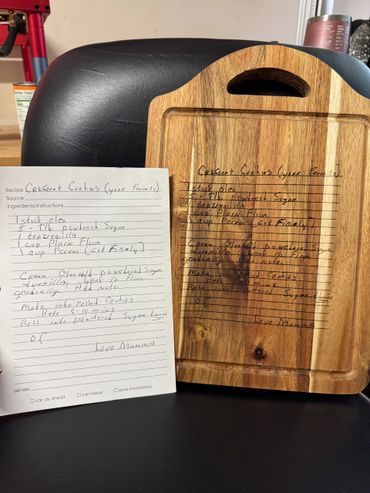 Recipe Crescent Cookies (your Favorite)
Source
Ingredients/Instructions
1 stick oleo
5 - Tb. powdered Sugar
1 tsp vanilla
1 cup Plain Flour
1 cup Pecans (cut Finely)
Cream Oleo & powdered Sugar
& vanilla, work in Flour
gradually. Add Nuts.
Make into rolled Cookies
Bake 8-10 mins
Roll into powdered Sugar
Love Mammaw
Serves
can do ahead can freeze serve immediately
Crescent Cookies (your Favorite)
1 stick oleo
5 - Tb. powdered Sugar
1 tsp vanilla
1 cup Plain Flour
1 cup Pecans (cut Finely)
Cream Oleo & powdered Sugar
& vanilla, work in Flour
gradually. Add Nuts.
Make into rolled Cookies
Bake 8-10 mins
Roll into powdered Sugar
Love Mammaw